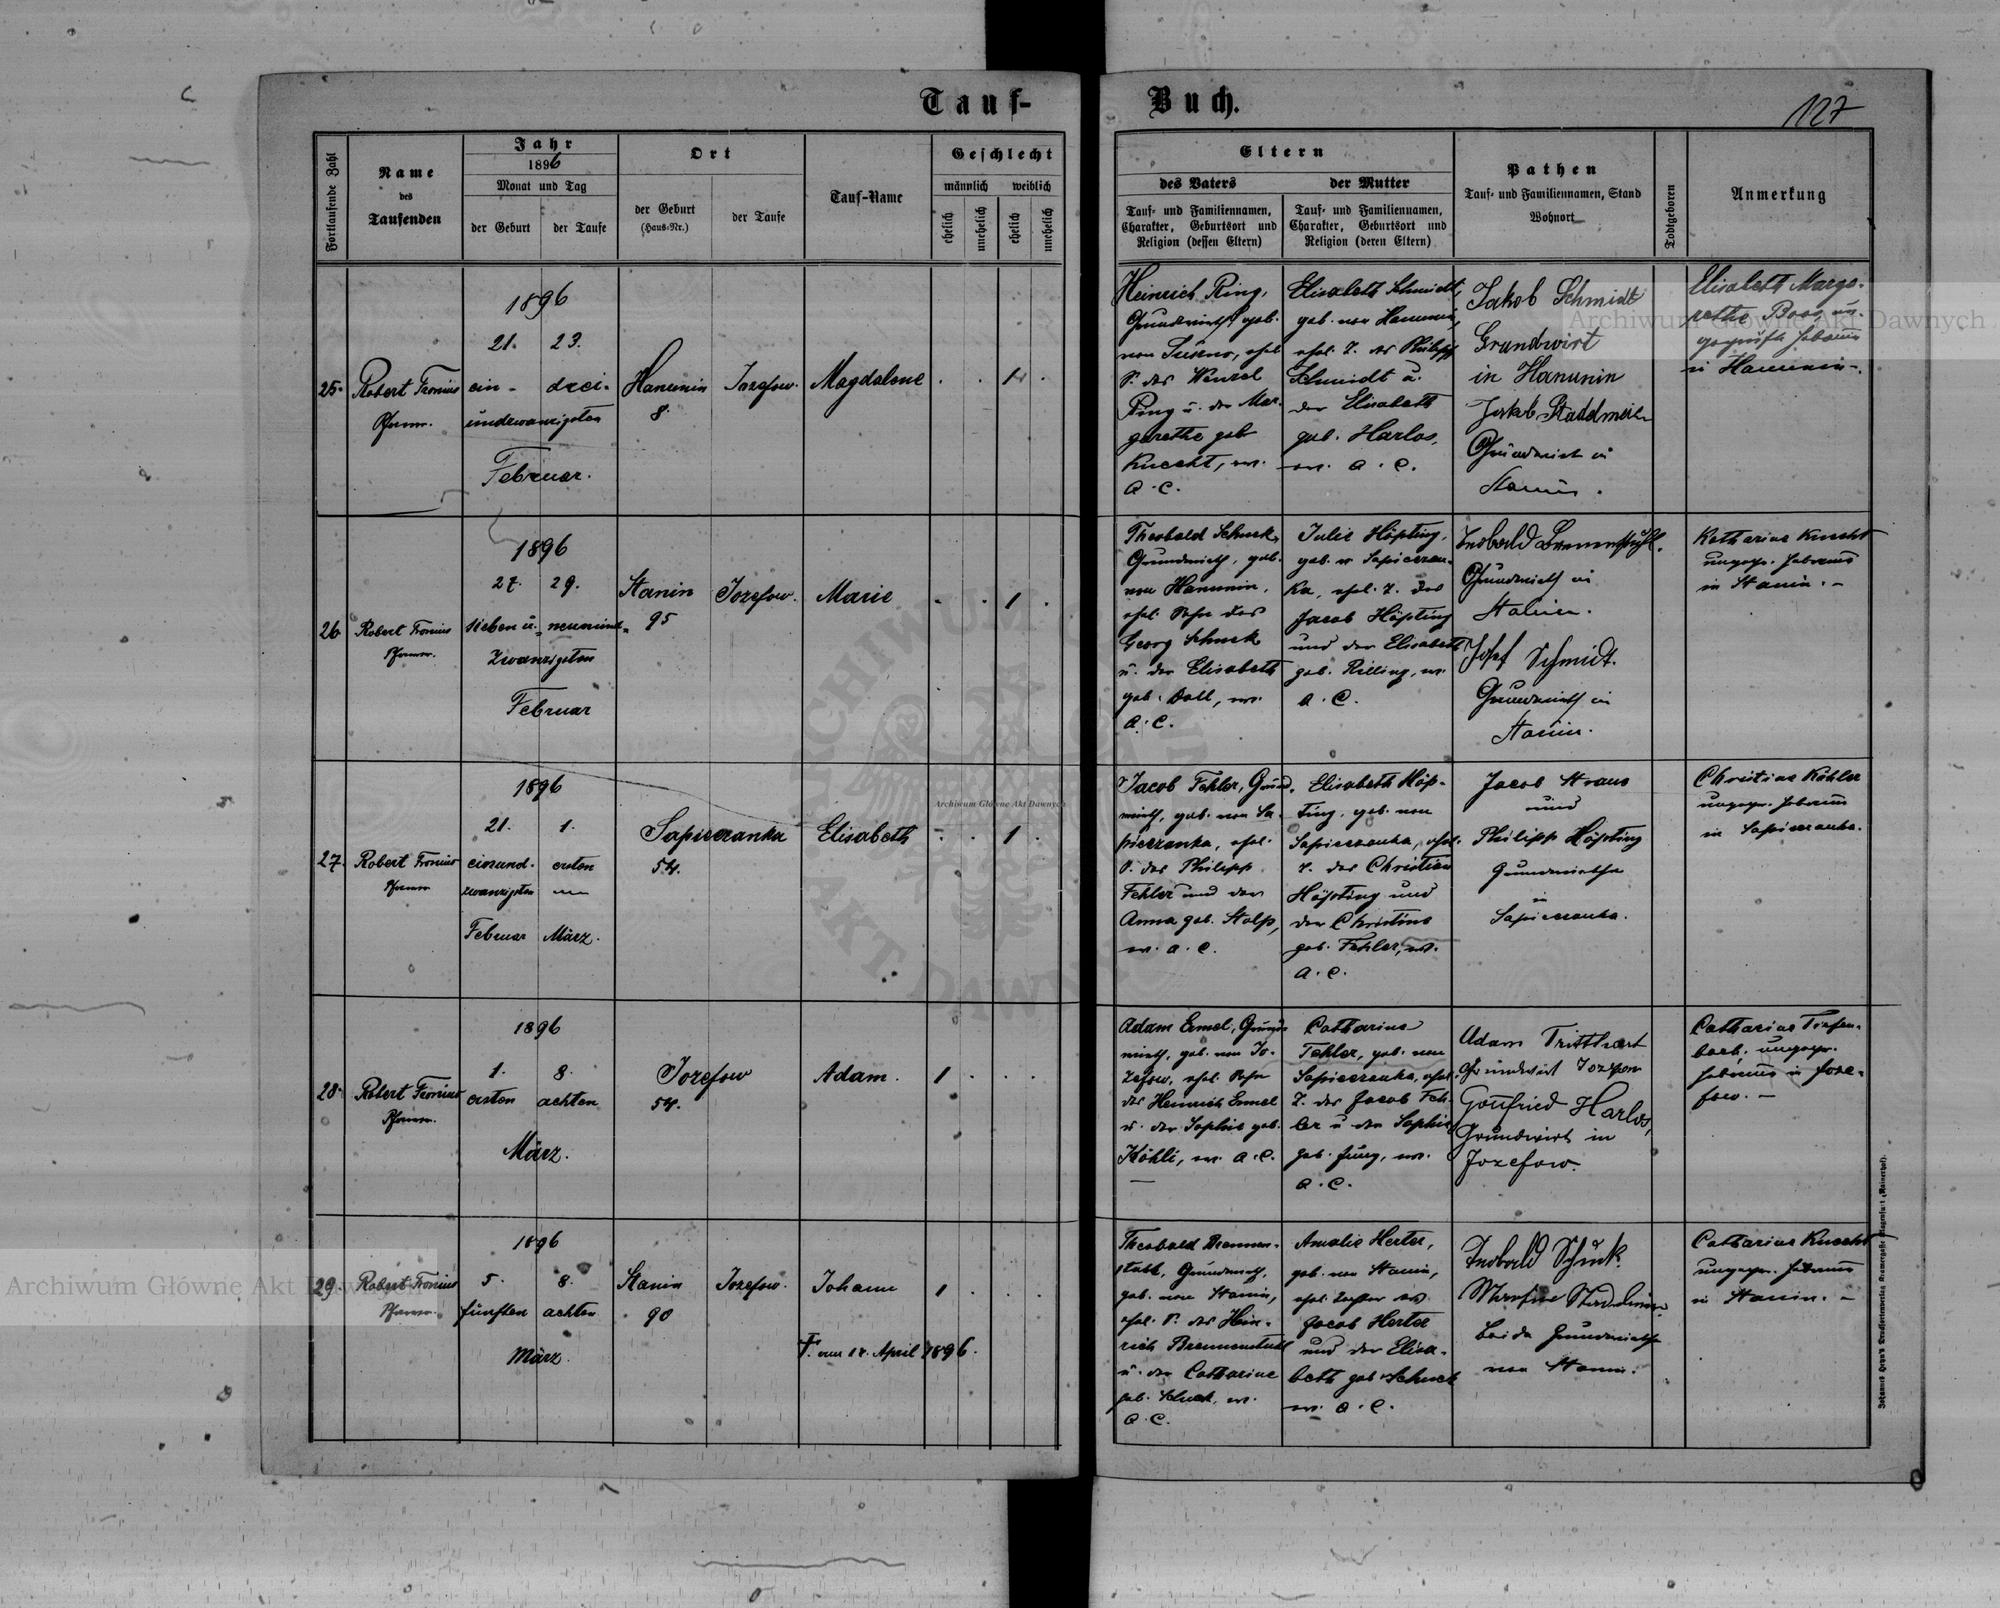 Tauf-
Buch.
127
Fortlaufende Zahl
Name
des
Taufenden
Jahr
1896
Monat und Tag
der Geburt
der Taufe
Ort
der Geburt
(Haus-Nr.)
der Taufe
Tauf-Name
Geschlecht
männlich
weiblich
ehelich
unehelich
ehelich
unehelich
Eltern
des Vaters
der Mutter
Tauf- und Familiennamen,
Charakter, Geburtsort und
Religion (dessen Eltern)
Tauf- und Familiennamen,
Charakter, Geburtsort und
Religion (deren Eltern)
Pathen
Tauf- und Familiennamen, Stand
Wohnort
Todtgeboren
Anmerkung
25.
Robert Fronius
Pfarrer.
1896
21. 23.
ein- drei-
undzwanzigsten
Februar.
Hanunin
8.
Jozefow.
Magdalene
1
Heinrich Ring,
Grundwirth, geb.
von
S. des Wenzel
Ring u. der Mar-
garethe geb
Knecht, ev.
A. C.
Elisabeth Schmidt,
geb. von Hanunin,
ehel. T. des Philipp
Schmidt u.
der Elisabeth
geb. Harlos,
ev. A. C.
Jakob Schmidt
Grundwirt
in Hanunin
Jakob Stadelmeier
Grundwirt in
Stanin.
Elisabeth Marga-
rethe Boos, un-
geprüfte Hebamme
in Hanunin.
26
Robert Fronius
Pfarrer.
1896
27. 29.
sieben u. neunund-
zwanzigsten
Februar
Stanin
95
Jozefow.
Marie
1
Theobald Schuck,
Grundwirth, geb.
von Hanunin,
ehel. Sohn des
Georg Schuck
u. der Elisabeth
geb. Doll, ev.
A. C.
Julie Höpting,
geb. v. Sapiezan-
ka, ehel. T. des
Jacob Höpting
und der Elisabeth
geb. Rilling, ev.
A. C.
Teobald Brennenstuhl.
Grundwirth in
Stanin.
Josef Schmidt.
Grundwirth in
Stanin.
Katharina Knecht
ungepr. Hebamme
in Stanin. –
27.
Robert Fronius
Pfarrer
1896
21. 1.
einund- ersten
zwanzigsten
Februar März.
Sapiezanka
54.
Elisabeth
1
Jacob Fehler, Grund-
wirth, geb. von Sa-
piezanka, ehel.
S. des Philipp
Fehler und der
Anna geb. Stolp,
ev. A. C.
Elisabeth Höp-
ting, geb. von
Sapiezanka, ehel.
T. des Christian
Höpting und
der Christine
geb. Fehler, ev.
A. C.
Jacob Straus
und
Philipp Höpting
Grundwirthe
in
Sapiezanka.
Christine Köhler
ungepr. Hebamme
in Sapiezanka.
28.
Robert Fronius
Pfarrer.
1896
1. 8.
ersten achten
März.
Jozefow
54.
Adam.
1
Adam Ermel, Grund-
wirth, geb. von Jo-
zefow, ehel. Sohn
des Heinrich Ermel
u. der Sophie geb.
Köhli, ev. A. C.
Catharine
Fehler, geb. von
Sapiezanka, ehel.
T. des Jacob Feh-
ler u der Sophie
geb. Jung, ev.
A. C.
Adam Tritthart
Grundwirt Jozefow
Gottfried Harlos,
Grundwirt in
Jozefow.
Catharine Tiefen-
bach, ungepr.
Hebamme in Joze-
fow. –
29.
Robert Fronius
Pfarrer.
1896
5. 8.
fünften achten
März.
Stanin
90
Jozefow.
Johann
†. am 14. April 1896.
1
Theobald Brennen-
stuhl, Grundwirth,
geb. von Stanin,
ehel. S. des Hein-
rich Brennenstuhl
u. der Catharine
geb. Schuck, ev.
A. C.
Amalie Herter,
geb. von Stanin,
ehel. Tochter des
Jacob Herter
und der Elisa-
beth geb. Schuck
ev. A. C.
Teobald Schuck.
beide Grundwirthe
von Stanin.
Catharine Knecht
ungepr. Hebamme
in Stanin. –
Archiwum Główne Akt Dawnych
Archiwum Główne Akt Dawnych
Archiwum Główne Akt Dawnych